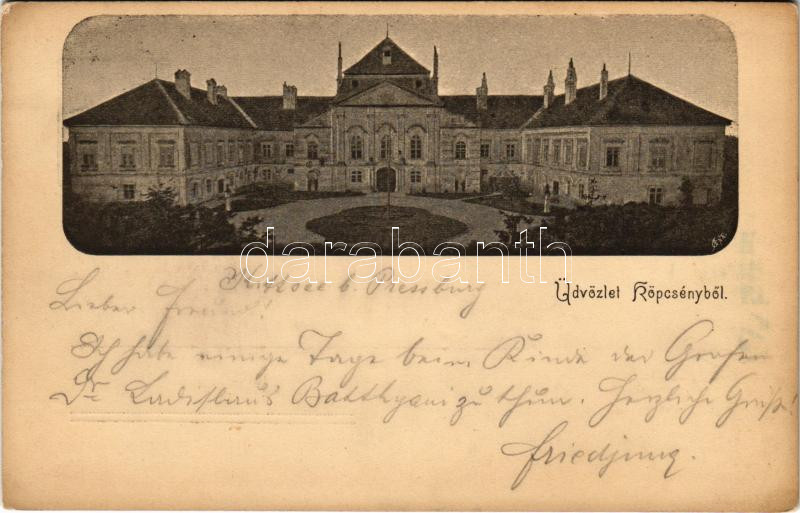 darabanth
Kittsee b. Pressburg
Üdvözlet Köpcsényből.
Lieber Freund!
Ich habe einige Tage beim Kinde des Grafen
Dr Ladislaus Batthyani zu thun. Herzliche Grüße!
Friedjung.